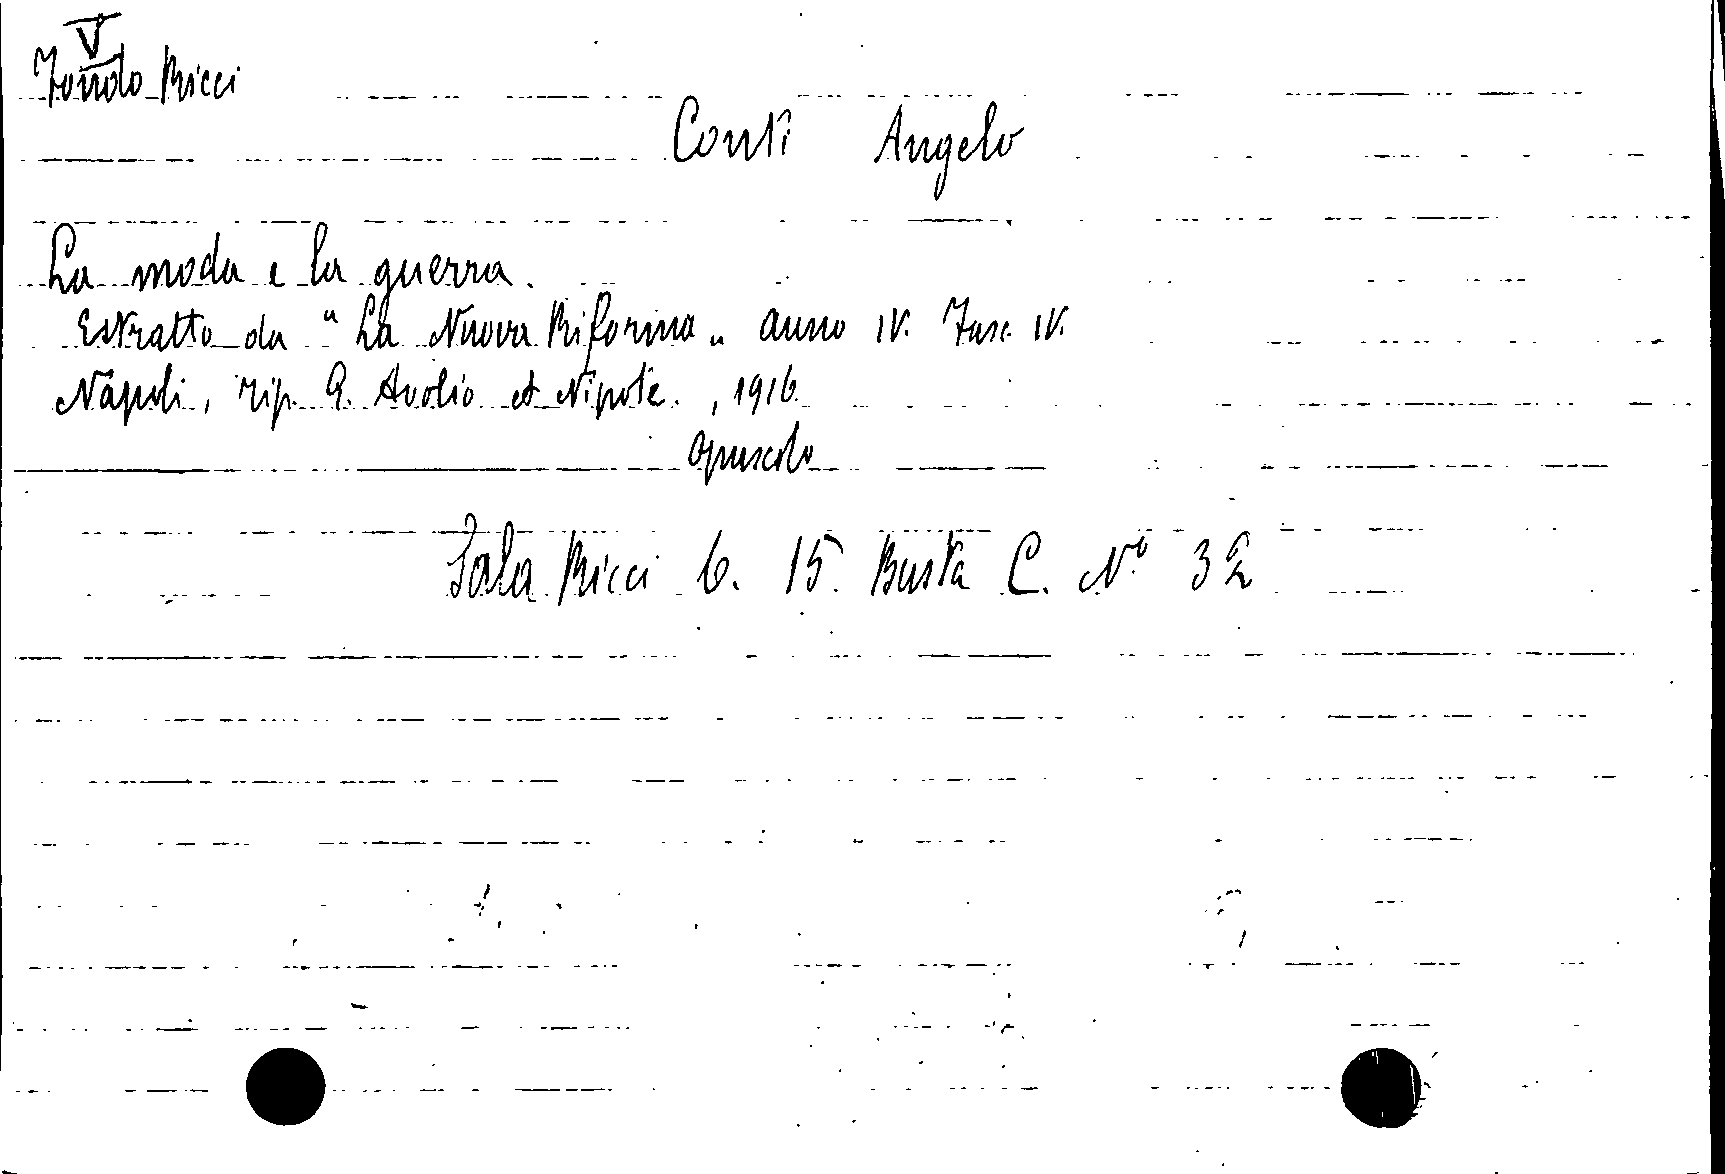 V
Fondo Ricci
Conti Angelo
La moda e la guerra.
Estratto da "La Nuova Riforma„ anno IV. Fasc. IV.
Napoli, Tip. G. Avolio et Nipote., 1916
opuscolo
Sala Ricci 6. 15. Busta C. N° 32